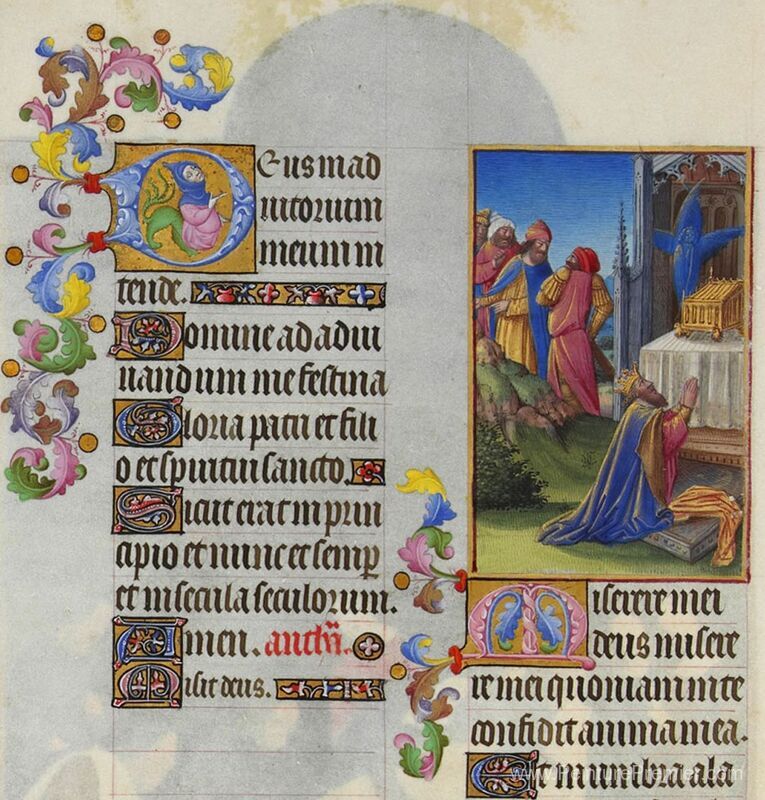 Deus in ad
iutorium
meum in
tende.
Domine ad adiu
uandum me festina
Gloria patri et fili
o et spiritui sancto.
Sicut erat in prin
cipio et nunc et semp
et in secula seculorum.
Amen. anth̄.
Misit deus.
Miserere mei
deus misere
re mei quoniam in te
confidit anima mea.
Et in umbra ala
www.PeinturePremier.com